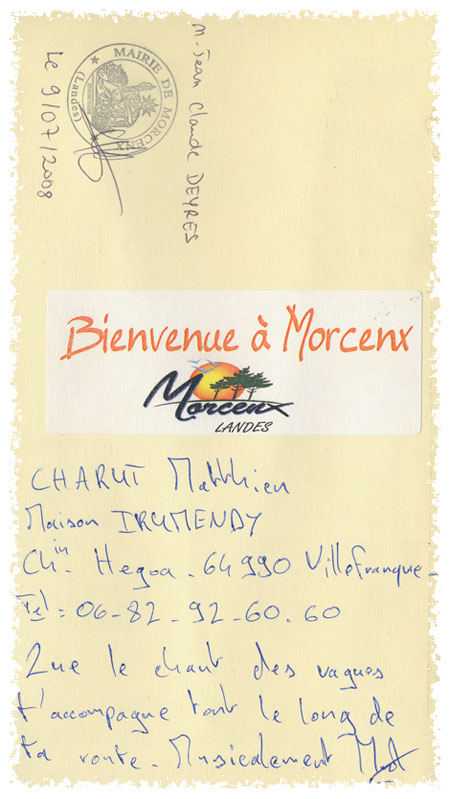 M. Jean Claude DEYRES
MAIRIE DE MORCENX
(Landes)
Le 9/07/2008
Bienvenue à Morcenx
Morcenx
LANDES
CHARUT Matthieu
Maison IRUMENDY
Chin Hegoa - 64 990 Villefranque -
Tel = 06-82-92-60-60
Que le chant des vagues
t'accompagne tout le long de
ta route - Musicalement Mat